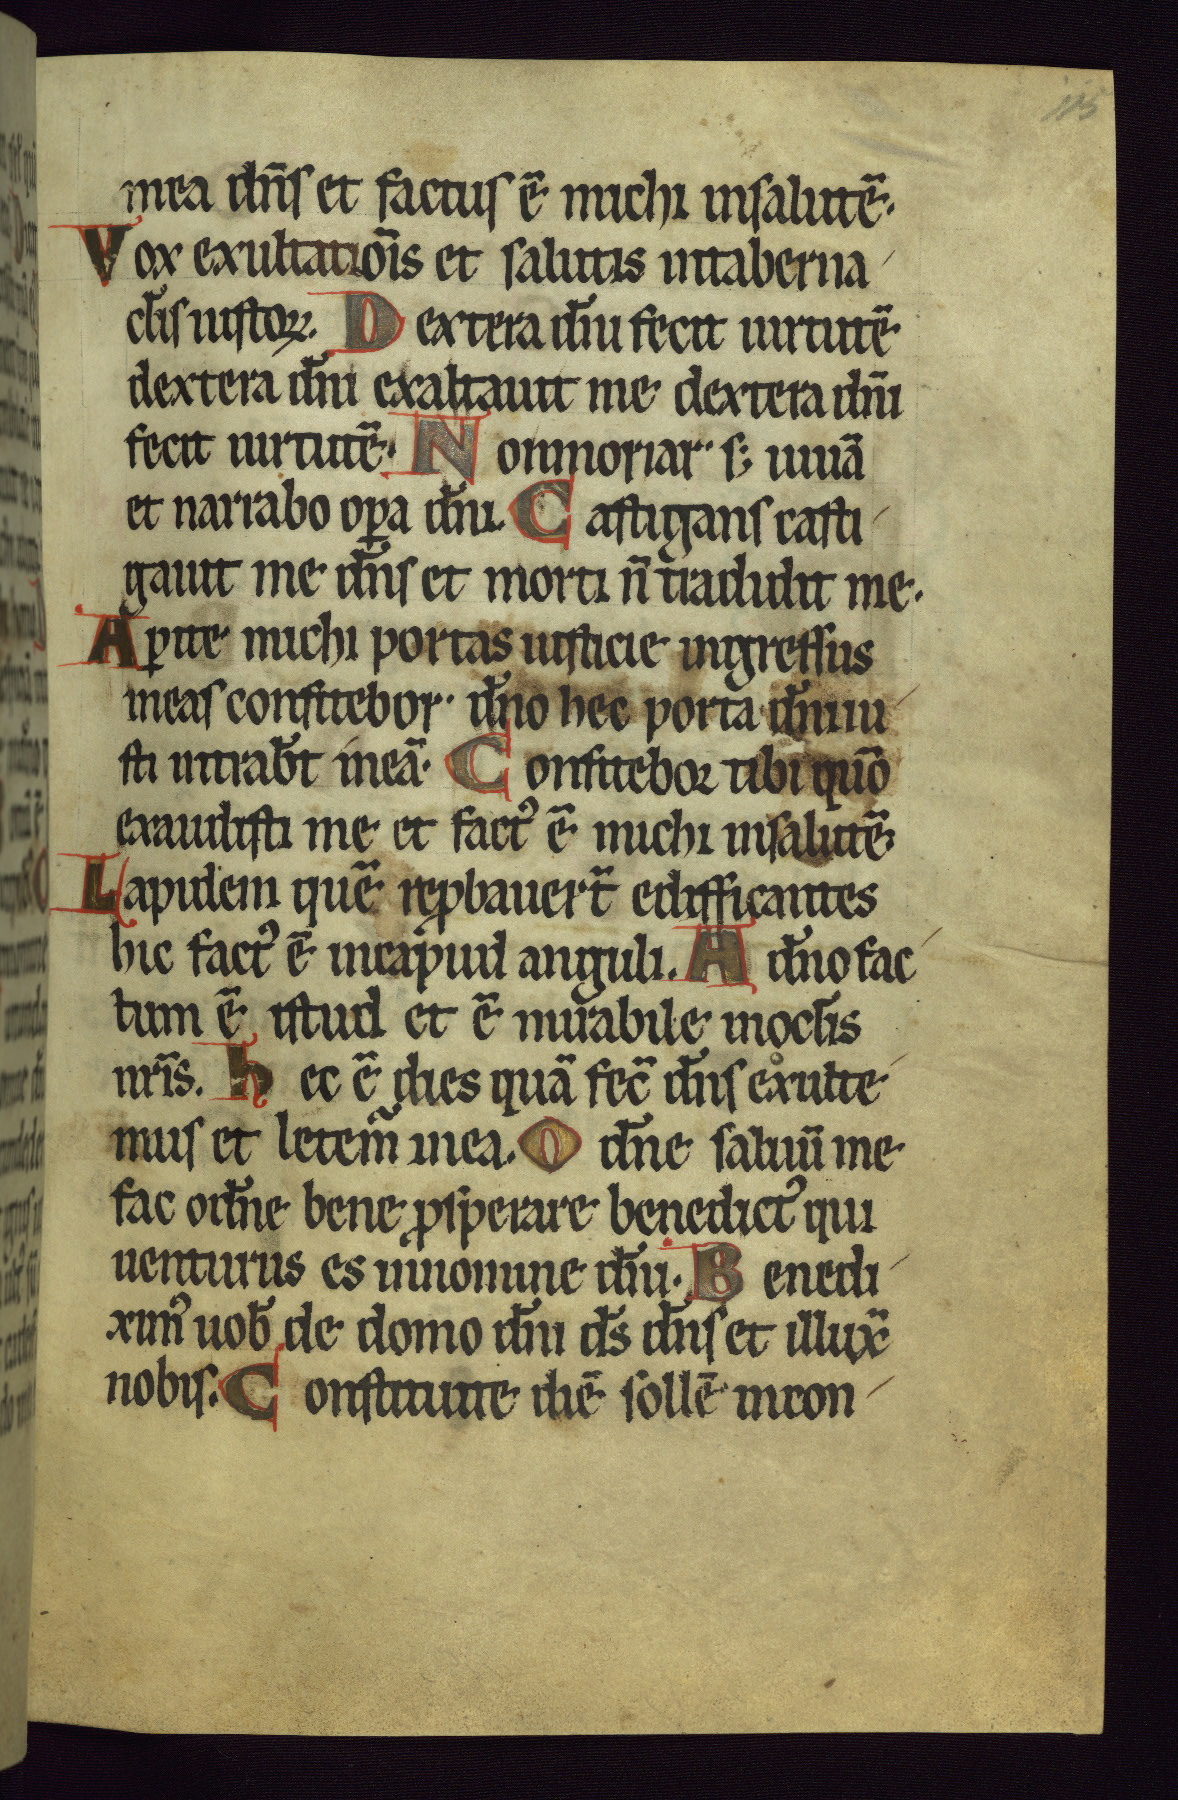 115
mea dn̄s et factus ē michi insalutē·
Vox exultatiōīs et salutis intaberna
cl̄is iustoꝝ. Dextera dn̄i fecit uirtutē
dextera dn̄i exaltauit me dextera dn̄i
fecit uirtutē· Non moriar s; uiuā
et narrabo oꝑa dn̄i. Castigans casti
gauit me dn̄s et morti n̄ tradidit me·
Aꝑite michi portas iusticie ingressus
ineas confitebor dn̄o hec porta dn̄i iu
sti intrab̄t ineā· Confitebor tibi qm̄o
exaudisti me et factꝰ ē michi insalutē·
Lapidem quē reꝓbauert̄ edifficantes
hic factꝰ ē incapud anguli. A dn̄o fac
tum ē istud et ē mirabile inocl̄is
nr̄is. hec ē dies quā fec̄ dn̄s exulte
mus et letem̄ inea. O dn̄e saluū me
fac odn̄e bene ꝓsperare benedictꝰ qui
uenturus es innomine dn̄i. Benedi
ximꝰ uob̄ de domo dn̄i ds̄ dn̄s et illux̄
nobis. Constituite diē sollē incon